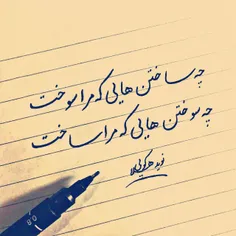 چه ساختن هایی که مرا سوخت
چه سوختن هایی که مرا ساخت